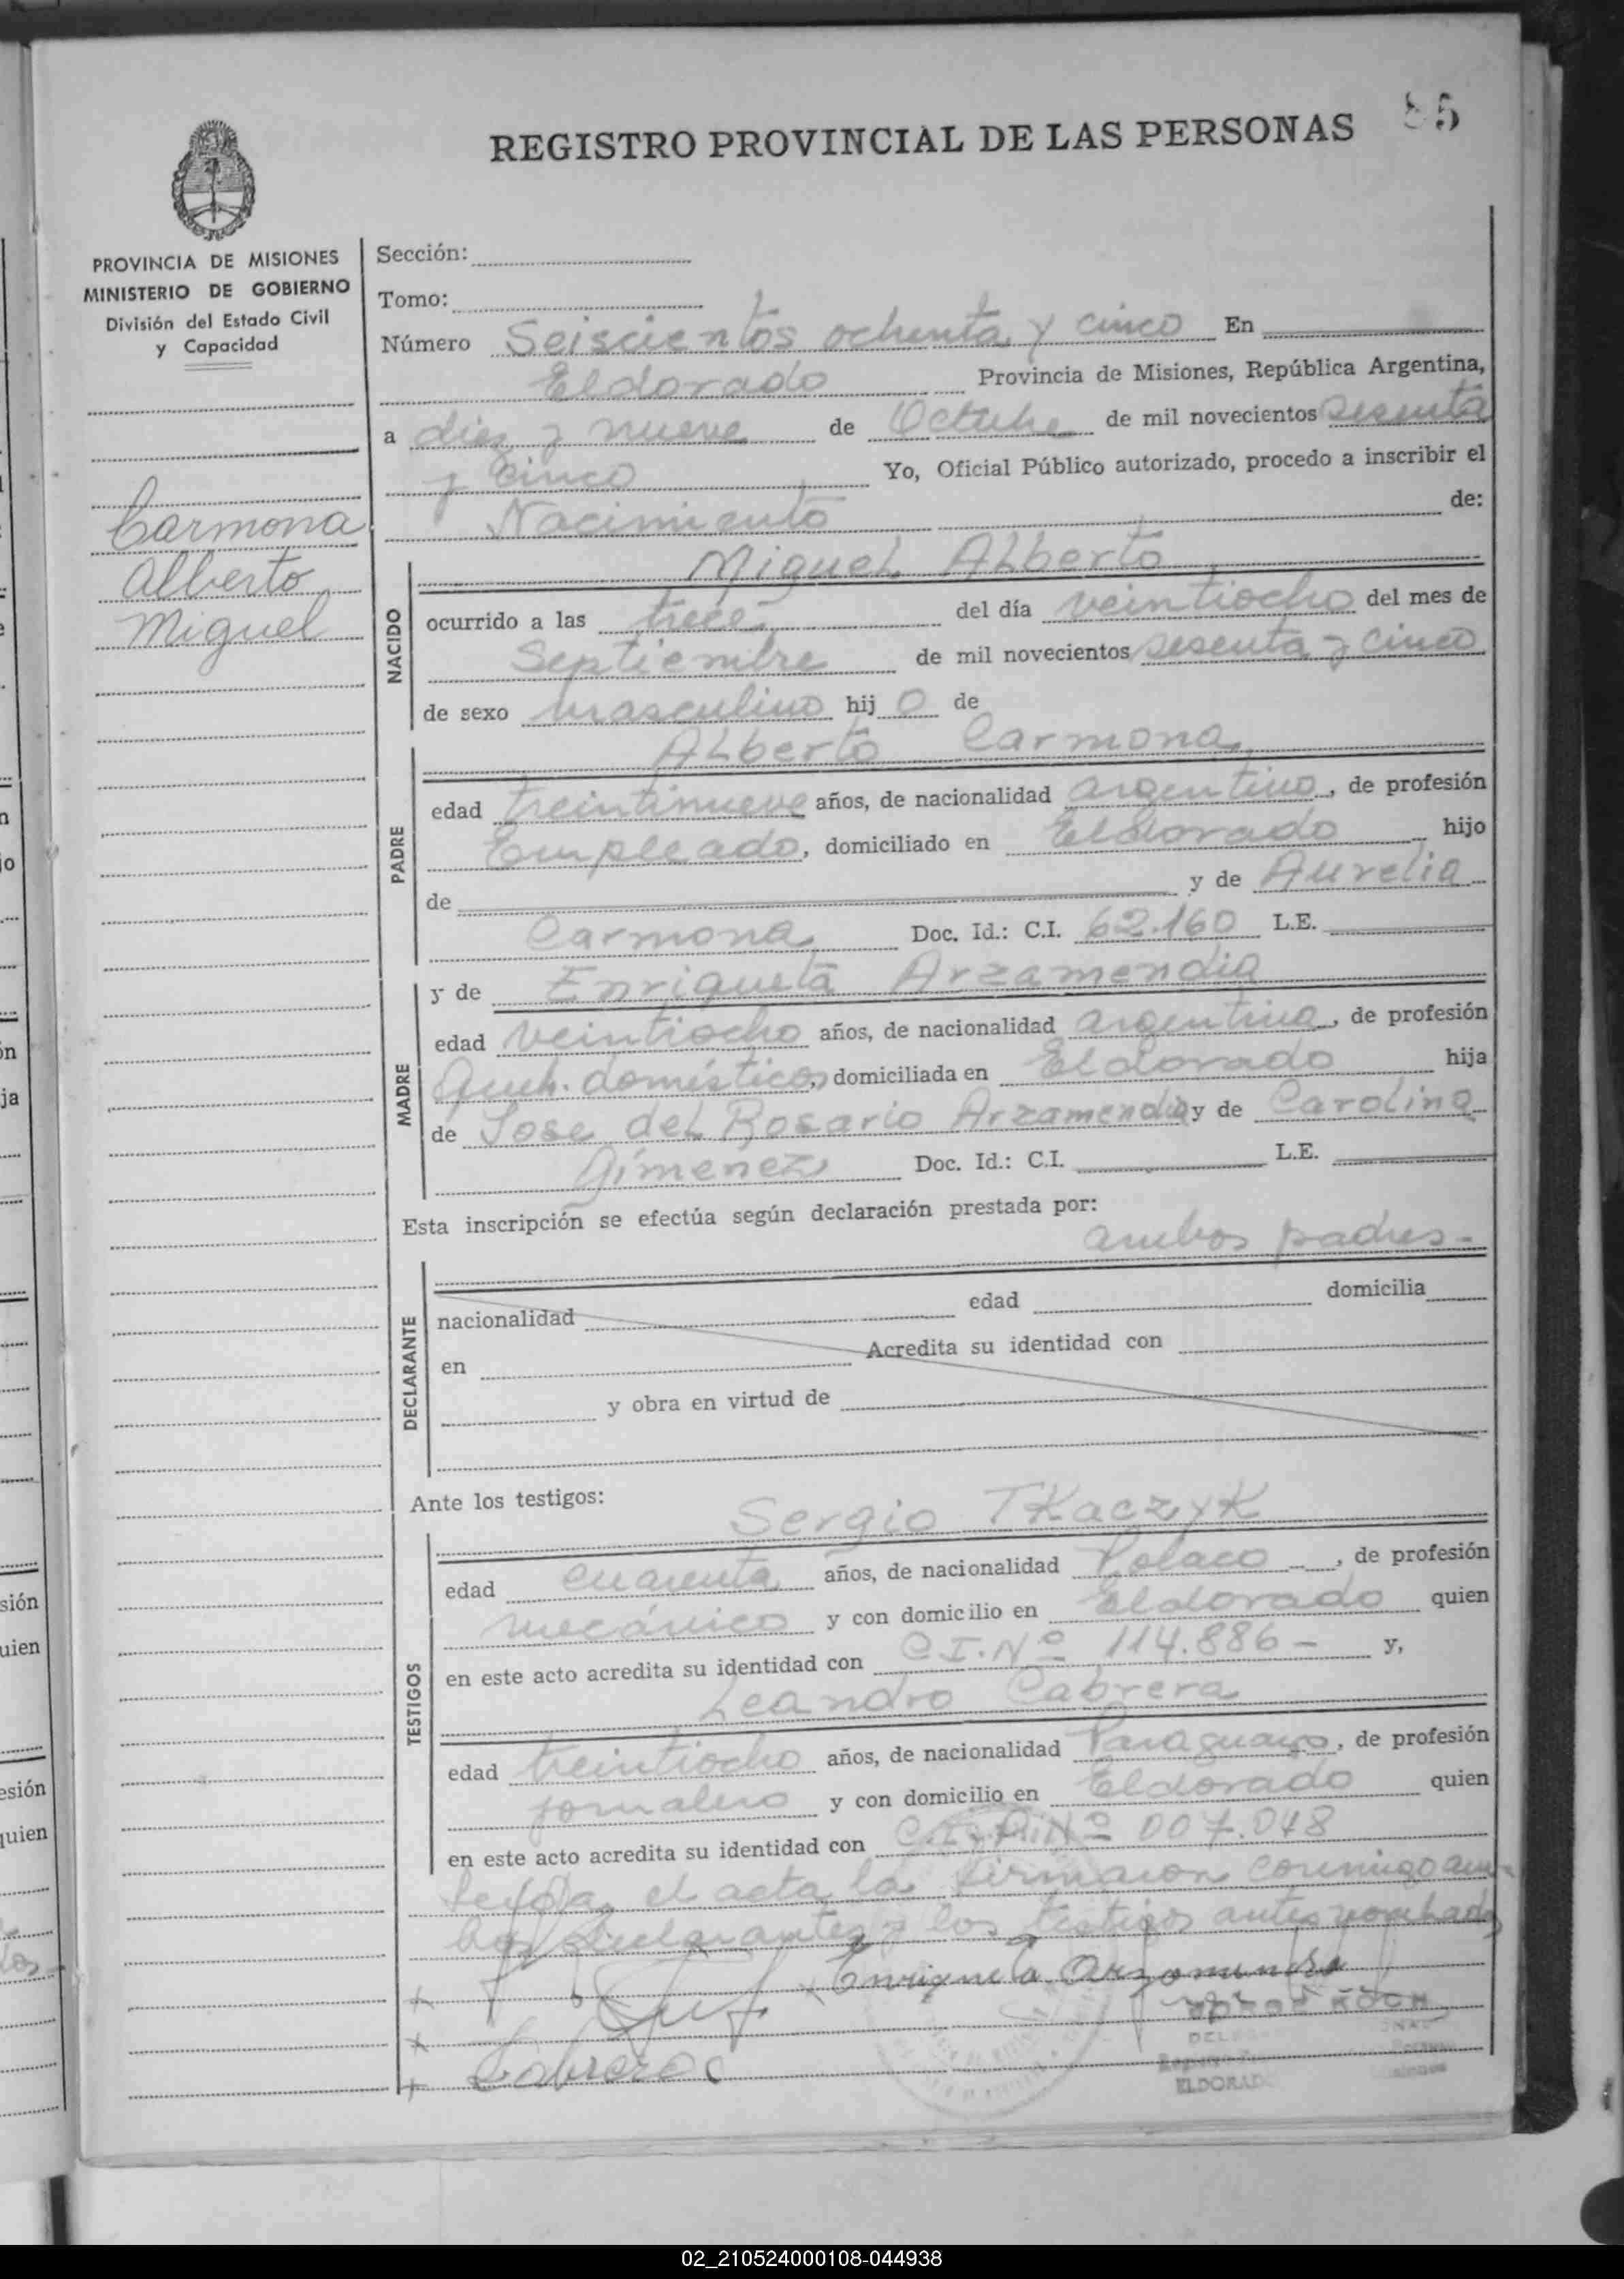 85
REGISTRO PROVINCIAL DE LAS PERSONAS
PROVINCIA DE MISIONES
MINISTERIO DE GOBIERNO
División del Estado Civil
y Capacidad
Carmona
Alberto
Miguel
Sección:
Tomo:
Número Seiscientos ochenta y cinco En
Eldorado Provincia de Misiones, República Argentina,
a diez y nueve de Octubre de mil novecientos sesenta
y cinco Yo, Oficial Público autorizado, procedo a inscribir el
Nacimiento de:
NACIDO
Miguel Alberto
ocurrido a las trece del día veintiocho del mes de
Septiembre de mil novecientos sesenta y cinco
de sexo masculino hij o de
PADRE
Alberto Carmona
edad treintinueve años, de nacionalidad argentino, de profesión
Empleado, domiciliado en Eldorado hijo
de y de Aurelia
Carmona Doc. Id.: C.I. 62.160 L.E.
MADRE
y de Enriqueta Arzamendia
edad veintiocho años, de nacionalidad argentina, de profesión
Queh. domésticos, domiciliada en Eldorado hija
de Jose del Rosario Arzamendia y de Carolina
Gimenez Doc. Id.: C.I. L.E.
Esta inscripción se efectúa según declaración prestada por:
ambos padres-
DECLARANTE
nacionalidad edad domicilia
en Acredita su identidad con
y obra en virtud de
Ante los testigos:
TESTIGOS
Sergio Tkaczyk
edad cuarenta años, de nacionalidad Polaco, de profesión
mecánico y con domicilio en Eldorado quien
en este acto acredita su identidad con C.I. Nº 114.886- y,
Leandro Cabrera
edad treintiocho años, de nacionalidad Paraguayo, de profesión
jornalero y con domicilio en Eldorado quien
en este acto acredita su identidad con Nº 007.048
Leída el acta la firmaron conmigo am-
bos declarantes y los testigos antes nombrados
Enriqueta Arzamendia
Cabrera
ELDORADO
02_210524000108-044938